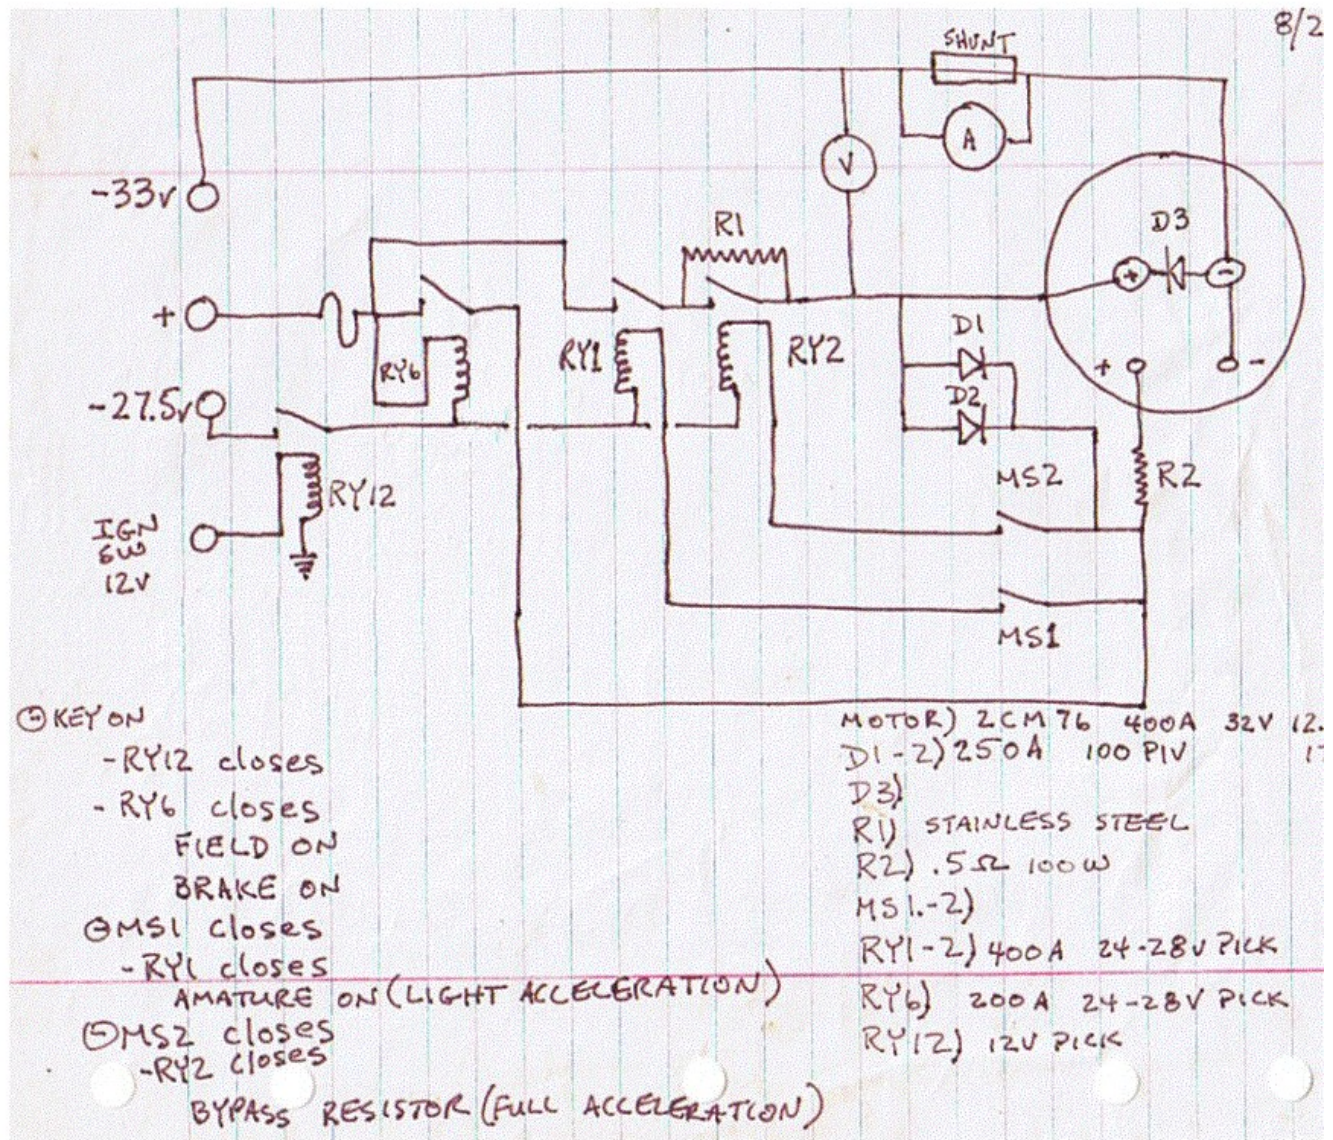 8/2
SHUNT
A
V
-33v
R1
D3
+
-
+
RY6
RY1
RY2
D1
D2
+
-
-27.5v
RY12
MS2
R2
IGN
SW
12V
MS1
KEY ON
-RY12 closes
- RY6 closes
FIELD ON
BRAKE ON
MS1 closes
-RY1 closes
AMATURE ON (LIGHT ACCELERATION)
MS2 closes
-RY2 closes
BYPASS RESISTOR (FULL ACCELERATION)
MOTOR) 2CM76 400A 32V 12.
D1-2) 250A 100 PIV 17
D3)
R1) STAINLESS STEEL
R2) .5Ω 100W
MS1.-2)
RY1-2) 400A 24-28V PICK
RY6) 200A 24-28V PICK
RY12) 12V PICK